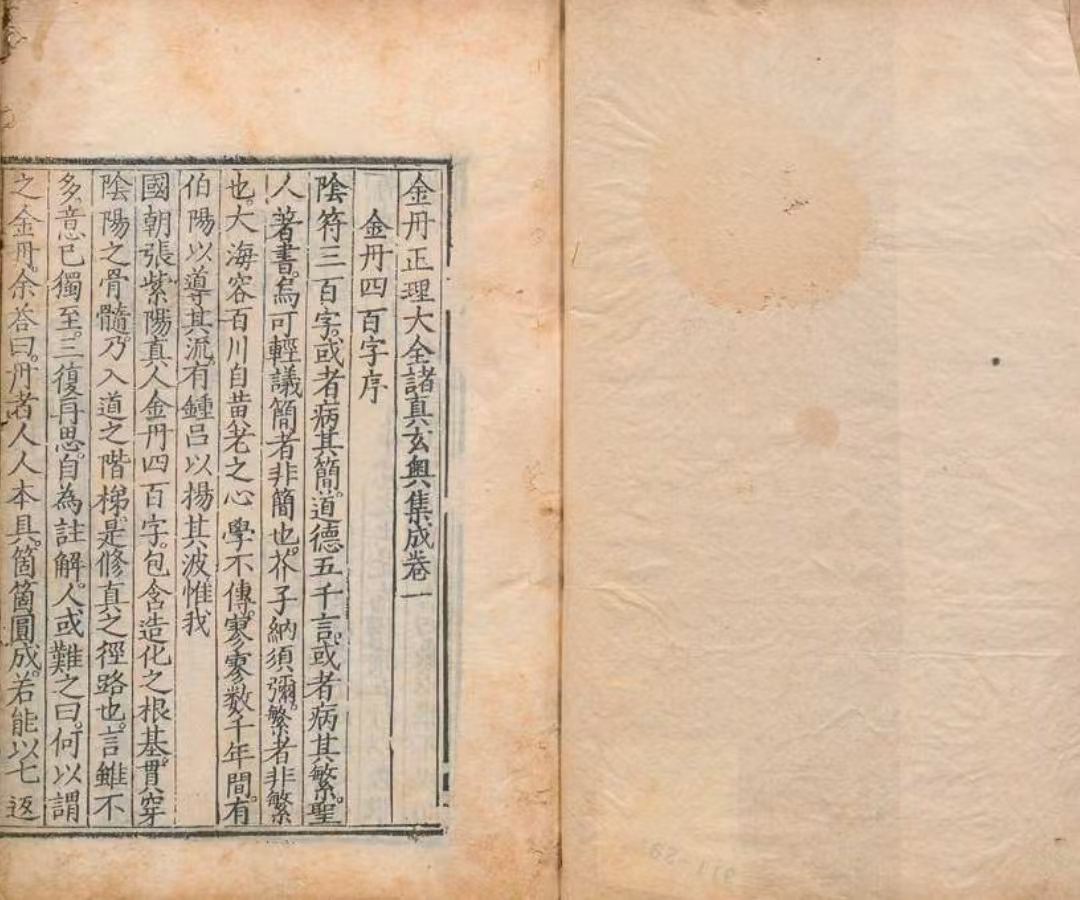 金丹正理大全諸真玄奧集成卷一
金丹四百字序
陰符三百字。或者病其簡。道德五千言。或者病其繁。聖
人著書。烏可輕議簡者非簡也。芥子納須彌。繁者非繁
也。大海容百川自黃老之心學不傳。寥寥數千年間。有
伯陽以導其流。有鍾呂以揚其波。惟我
國朝張紫陽真人金丹四百字。包含造化之根基。貫穿
陰陽之骨髓。乃入道之階梯。是修真之徑路也。言雖不
多。意已獨至。三復再思。自為註解。人或難之曰。何以謂
之金丹。余答曰。丹者人人本具。箇箇圓成。若能以七返